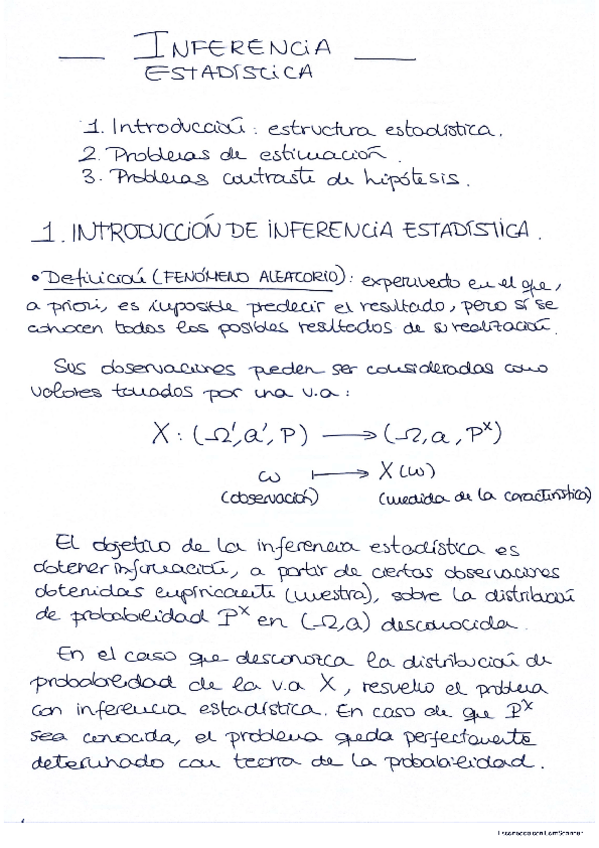 INFERENCIA
ESTADÍSTICA
1. Introducción: estructura estadística.
2. Problemas de estimación.
3. Problemas contraste de hipótesis.
1. INTRODUCCIÓN DE INFERENCIA ESTADÍSTICA.
• Definición (FENÓMENO ALEATORIO): experimento en el que,
a priori, es imposible predecir el resultado, pero sí se
conocen todos los posibles resultados de su realización.
Sus observaciones pueden ser consideradas como
valores tomados por una v.a:
X: (Ω', a', P) ⟶ (Ω, a, Pˣ)
ω ⟼ X(ω)
(observación) (medida de la característica)
El objetivo de la inferencia estadística es
obtener información, a partir de ciertas observaciones
obtenidas empíricamente (muestra), sobre la distribución
de probabilidad Pˣ en (Ω, a) desconocida.
En el caso que desconozca la distribución de
probabilidad de la v.a X, resuelvo el problema
con inferencia estadística. En caso de que Pˣ
sea conocida, el problema queda perfectamente
determinado con teoría de la probabilidad.
Escaneado con CamScanner